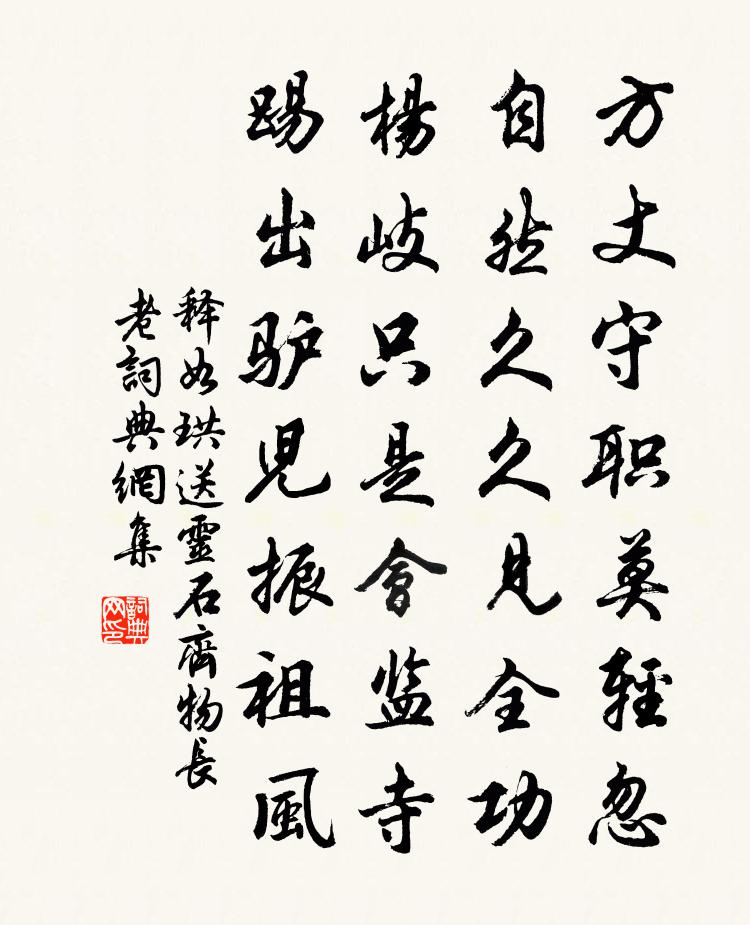 方丈守职莫輕忽
自然久久見全功
楊岐只是會监寺
踢出驴児振祖風
释如珙送靈石齊物長
老詞典網集
詞典网印